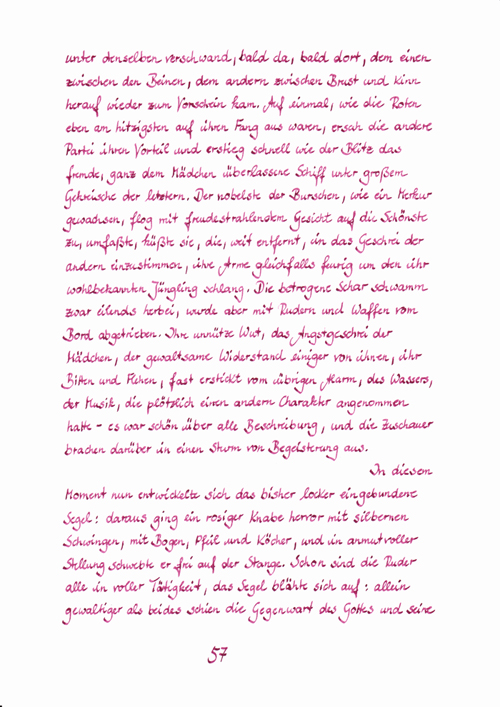 unter denselben verschwand, bald da, bald dort, dem einen
zwischen den Beinen, dem andern zwischen Brust und Kinn
herauf wieder zum Vorschein kam. Auf einmal, wie die Roten
eben am hitzigsten auf ihren Fang aus waren, ersah die andere
Partei ihren Vorteil und erstieg schnell wie der Blitz das
fremde, ganz dem Mädchen überlassene Schiff unter großem
Gekreische der letztern. Der nobelste der Burschen, wie ein Merkur
gewachsen, flog mit freudestrahlendem Gesicht auf die Schönste
zu, umfaßte, küßte sie, die, weit entfernt, in das Geschrei der
andern einzustimmen, ihre Arme gleichfalls feurig um den ihr
wohlbekannten Jüngling schlang. Die betrogene Schar schwamm
zwar eilends herbei, wurde aber mit Rudern und Waffen vom
Bord abgetrieben. Ihre unnütze Wut, das Angstgeschrei der
Mädchen, der gewaltsame Widerstand einiger von ihnen, ihr
Bitten und Flehen, fast erstickt vom übrigen Alarm, des Wassers,
der Musik, die plötzlich einen andern Charakter angenommen
hatte - es war schön über alle Beschreibung, und die Zuschauer
brachen darüber in einen Sturm von Begeisterung aus.
In diesem
Moment nun entwickelte sich das bisher locker eingebundene
Segel: daraus ging ein rosiger Knabe hervor mit silbernen
Schwingen, mit Bogen, Pfeil und Köcher, und in anmutvoller
Stellung schwebte er frei auf der Stange. Schon sind die Ruder
alle in voller Tätigkeit, das Segel blähte sich auf: allein
gewaltiger als beides schien die Gegenwart des Gottes und seine
57